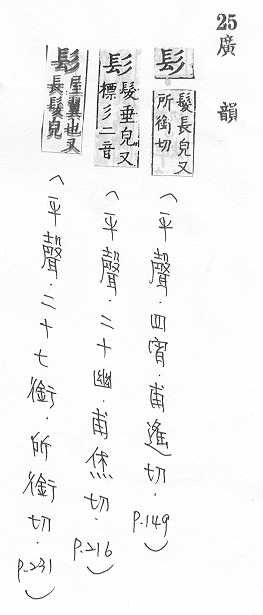 25廣韻
髟
髮長皃又
所銜切
(平聲.四宵.甫遙切.P.149)
髟
髮垂皃又
標彡二音
(平聲.二十幽.甫烋切.P.216)
髟
屋翼也又
長髮皃
(平聲.二十七銜.所銜切.P.231)